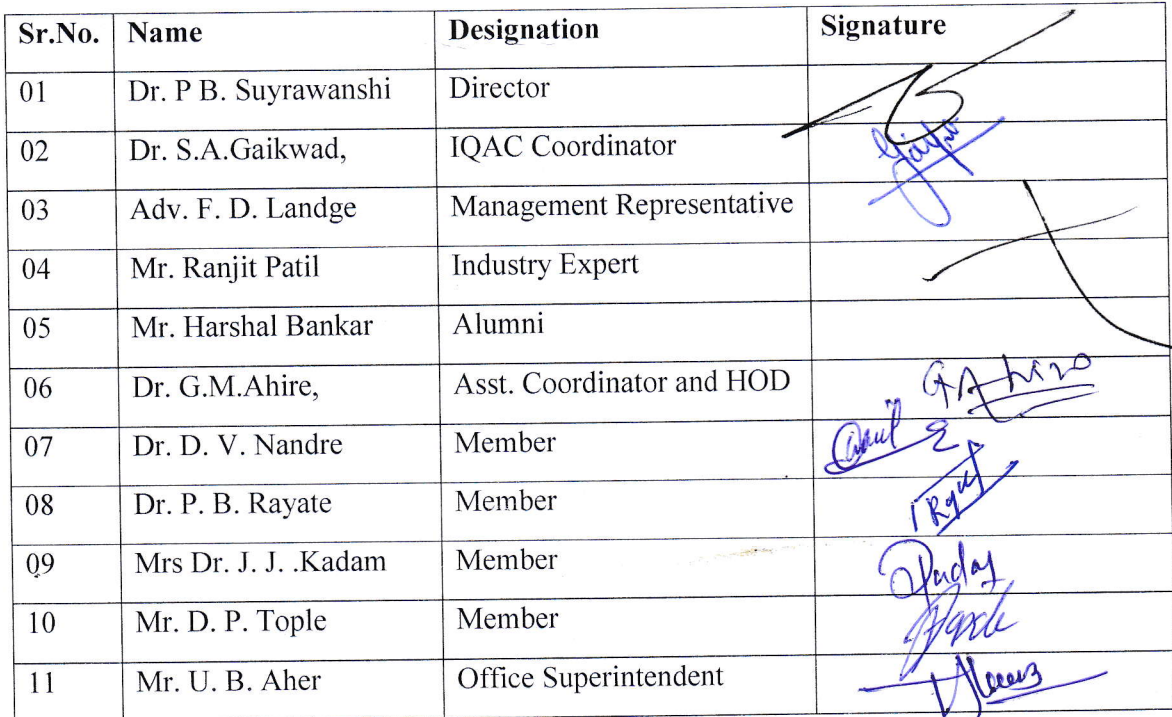 Sr.No. Name Designation Signature
01 Dr. P B. Suyrawanshi Director
02 Dr. S.A.Gaikwad, IQAC Coordinator
03 Adv. F. D. Landge Management Representative
04 Mr. Ranjit Patil Industry Expert
05 Mr. Harshal Bankar Alumni
06 Dr. G.M.Ahire, Asst. Coordinator and HOD
07 Dr. D. V. Nandre Member
08 Dr. P. B. Rayate Member
09 Mrs Dr. J. J. .Kadam Member
10 Mr. D. P. Tople Member
11 Mr. U. B. Aher Office Superintendent